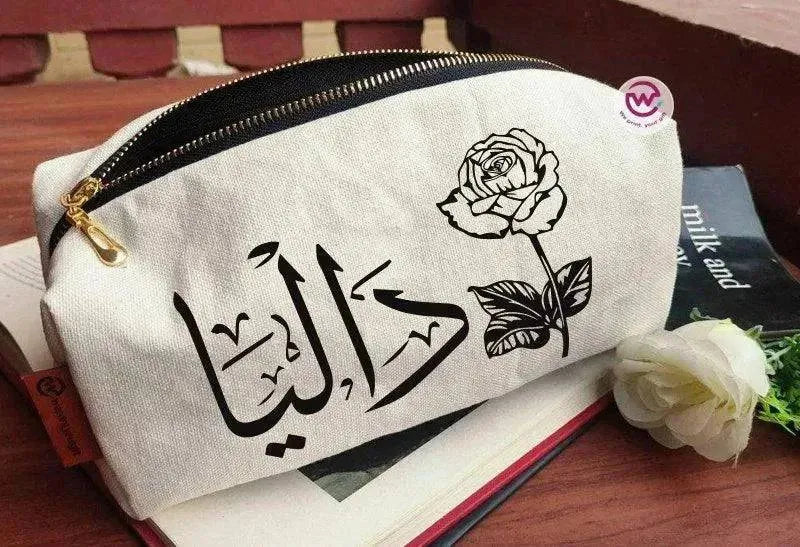 داليا
We print your gift
milk and